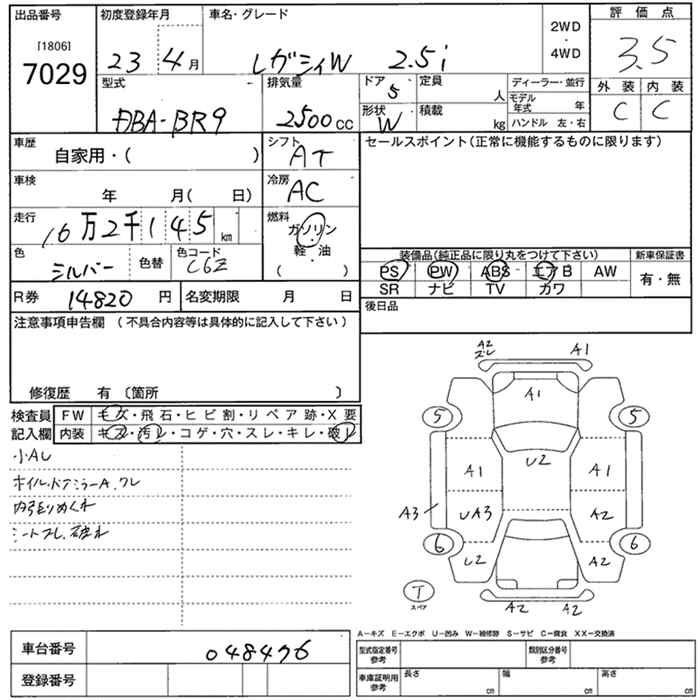 出品番号
[1806]
7029
初度登録年月
23 4 月
車名・グレード
レガシィW 2.5i
2WD
・
4WD
評価点
3.5
外装 内装
C C
型式
DBA-BR9
排気量
2500 cc
ドア
5
形状
W
定員
人
積載
kg
ディーラー・並行
モデル
年式 年
ハンドル 左・右
車歴
自家用・( )
シフト
AT
車検
年 月( 日)
冷房
AC
走行
10万2千145 km
燃料
ガソリン
軽・油
( )
色
シルバー
色替
色コード
C6Z
R券 14820 円
名変期限 月 日
セールスポイント(正常に機能するものに限ります)
装備品(純正品に限り丸をつけて下さい)
PS PW ABS エアB AW
SR ナビ TV カワ
新車保証書
有・無
後日品
注意事項申告欄 (不具合内容等は具体的に記入して下さい)
修復歴 有 〔箇所 〕
検査員
記入欄
FW キズ・飛石・ヒビ割・リペア跡・X要
内装 キズ・汚レ・コゲ・穴・スレ・キレ・破レ
小AU
ホイル.ドアミラーA.ワレ
内張りめくれ
シートスレ.破れ
A2
A1
A1
5
5
U2
A1
A1
A3
UA3
A2
6
6
U2
A2
T
スペア
A2
A2
A-キズ E-エクボ U-凹み W-補修跡 S-サビ C-腐食 XX-交換済
車台番号 048476
登録番号
型式指定番号
参考
類別区分番号
参考
車庫証明用
参考
長さ cm
幅 cm
高さ cm